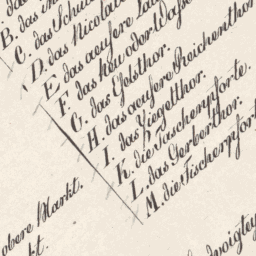 B. das
C. das Schul
D. das Nicolai
E. das aeusere Lau
F. das neu oder Wasse
G. das Golsthor.
H. das aeusere Reichenthor
I. das Ziegelthor.
K. die Taschenpforte.
L. das Gerberthor.
M. die Fischerpfort
obere Markt.
kt.
dvoigtey